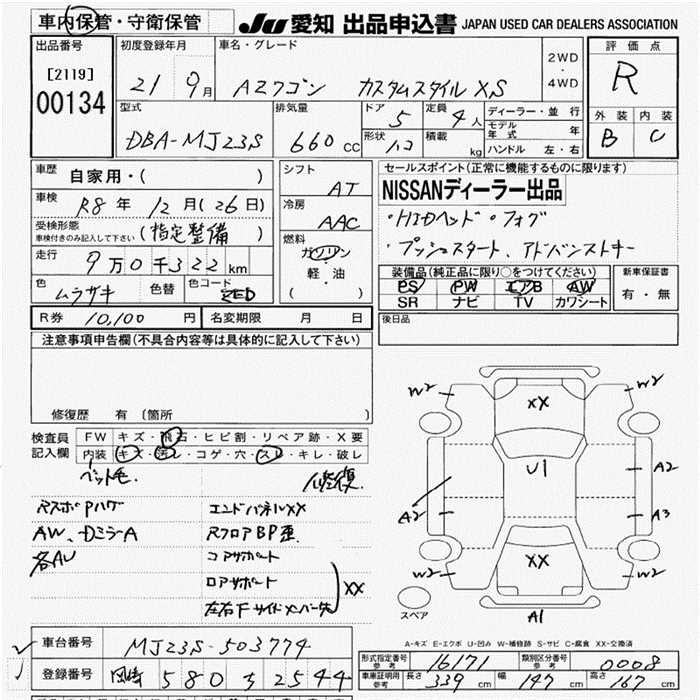 車内保管・守衛保管 JU愛知 出品申込書 JAPAN USED CAR DEALERS ASSOCIATION
出品番号
[2119]
00134
初度登録年月
21 9月
車名・グレード
AZワゴン カスタムスタイル XS
2WD
・
4WD
評価点
R
外装 内装
B C
型式
DBA-MJ23S
排気量
660 cc
ドア 5
定員 4人
形状 ハコ
積載 kg
ディーラー・並行
モデル年式 年
ハンドル 左・右
車歴 自家用・( )
車検 R8年 12月(26日)
受検形態
車検付きのみ記入して下さい (指定整備)
走行 9万0千322km
色 ムラサキ
色替
色コード ZED
シフト
AT
冷房
AAC
燃料
ガソリン
軽・油
( )
セールスポイント(正常に機能するものに限ります)
NISSANディーラー出品
・HIDヘッド・フォグ
・プッシュスタート、アドバンストキー
装備品(純正品に限り○をつけてください)
PS PW エアB AW
SR ナビ TV カワシート
新車保証書
有・無
R券 10,100円
名変期限 月 日
後日品
注意事項申告欄(不具合内容等は具体的に記入して下さい)
修復歴 有 〔箇所 〕
検査員記入欄
FW キズ・飛石・ヒビ割・リペア跡・X要
内装 キズ・汚レ・コゲ・穴・スレ・キレ・破レ
ペット毛
修復
RスポPハゲ
AW、DミラーA
各AU
エンドパネルXX
RフロアBP歪
コアサポート
ロアサポート
左右Fサイドメンバー先
XX
W2 XX W2
U1
A2 A2
A3
W2 XX W2
スペア
A1
A-キズ E-エクボ U-凹み W-補修跡 S-サビ C-腐食 XX-交換済
車台番号 MJ23S-503774
登録番号 岡崎 580 2544
形式指定番号 参考 16171
類別区分番号 参考 0008
車庫証明用 参考 長さ 339cm 幅 147cm 高さ 167cm